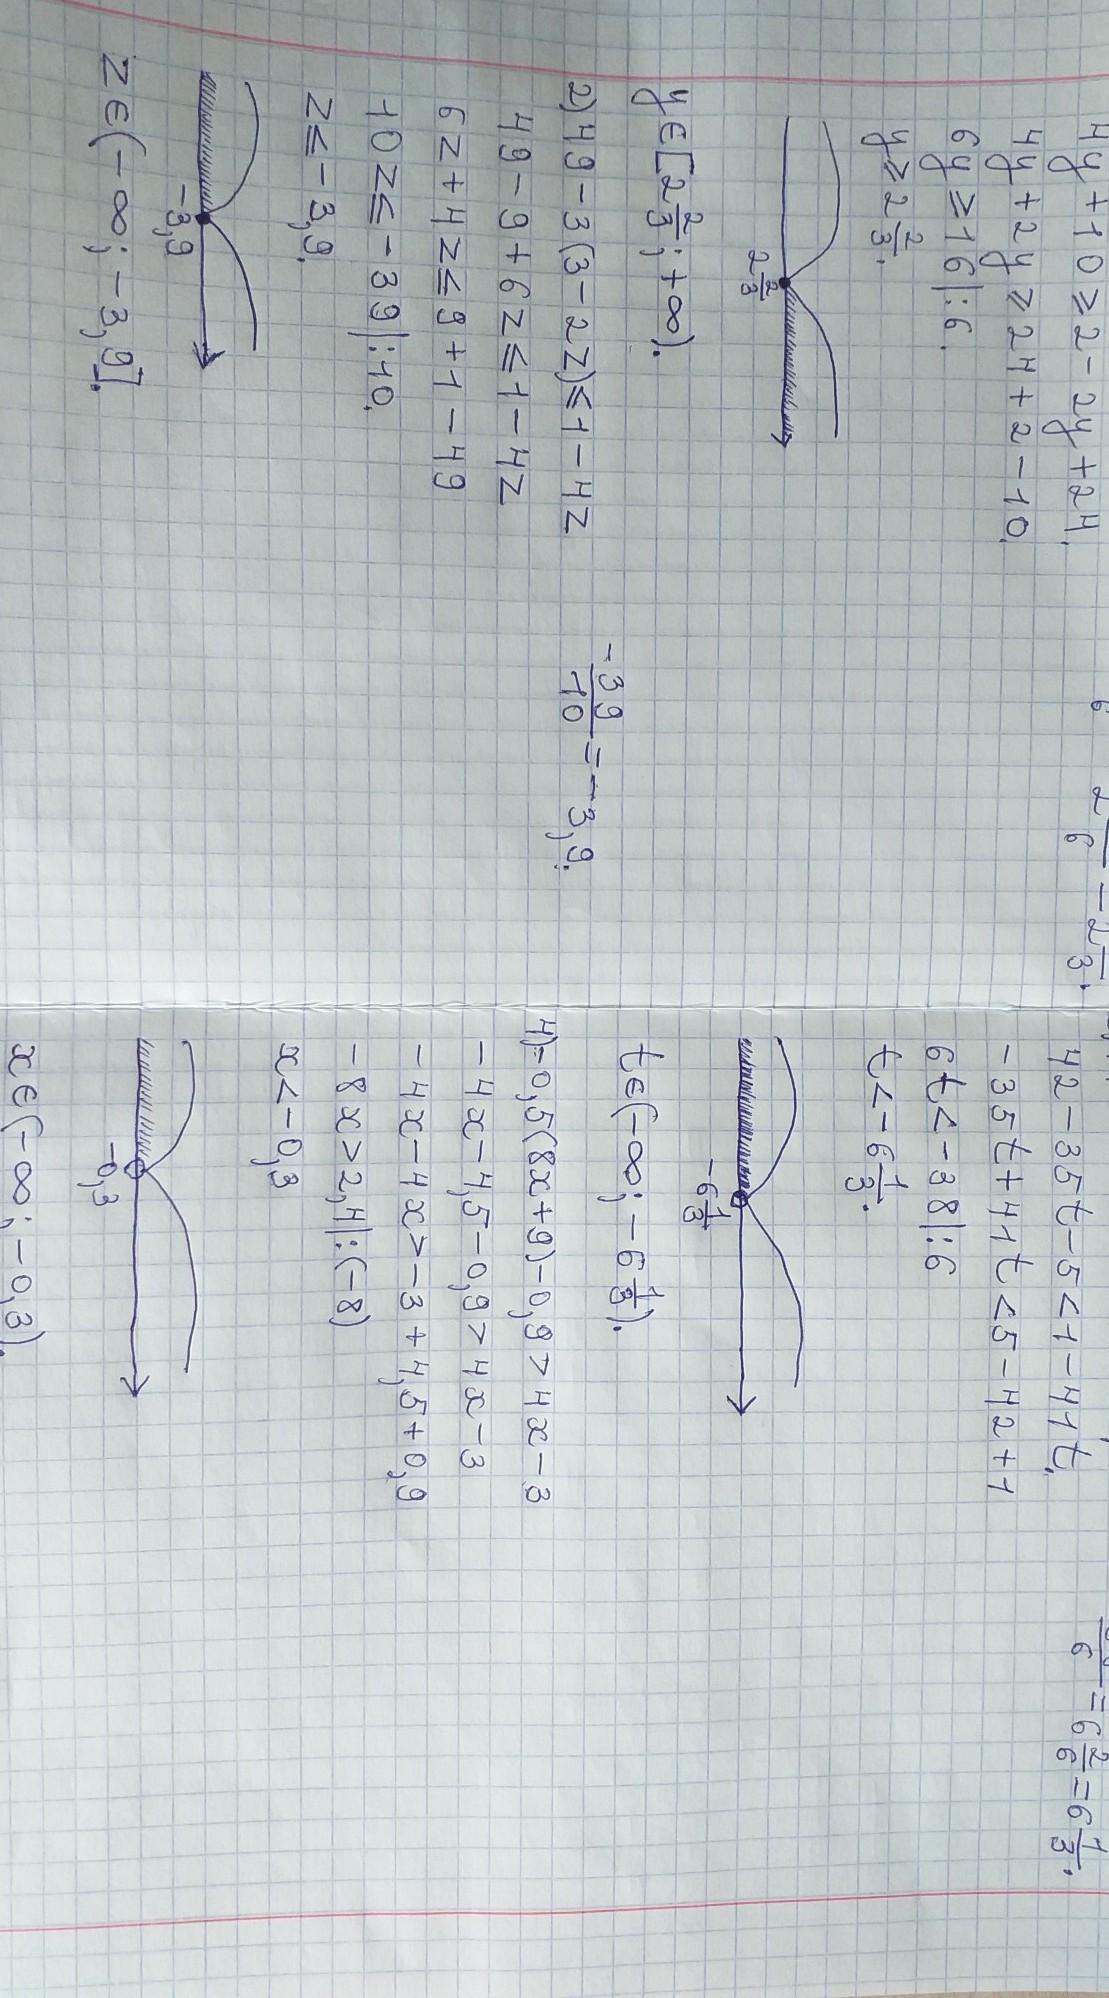 4y+10⩾2-2y+24.
4y+2y⩾24+2-10.
6y⩾16|:6.
y⩾2 2/3.
2 2/3
y∈[2 2/3; +∞).
2) 49-3(3-2z)⩽1-4z
49-9+6z⩽1-4z
6z+4z⩽9+1-49
10z⩽-39|:10.
z⩽-3,9.
-3,9
z∈(-∞; -3,9].
6
2 2/6 = 2 2/3.
-39/10 = -3,9.
42-35t-5<1-41t.
-35t+41t<5-42+1
6t<-38|:6
t<-6 1/3.
-6 1/3
t∈(-∞; -6 1/3).
4) -0,5(8x+9)-0,9>4x-3
-4x-4,5-0,9>4x-3
-4x-4x>-3+4,5+0,9
-8x>2,4|:(-8)
x<-0,3
-0,3
x∈(-∞; -0,3).
6 = 6 2/6 = 6 1/3.